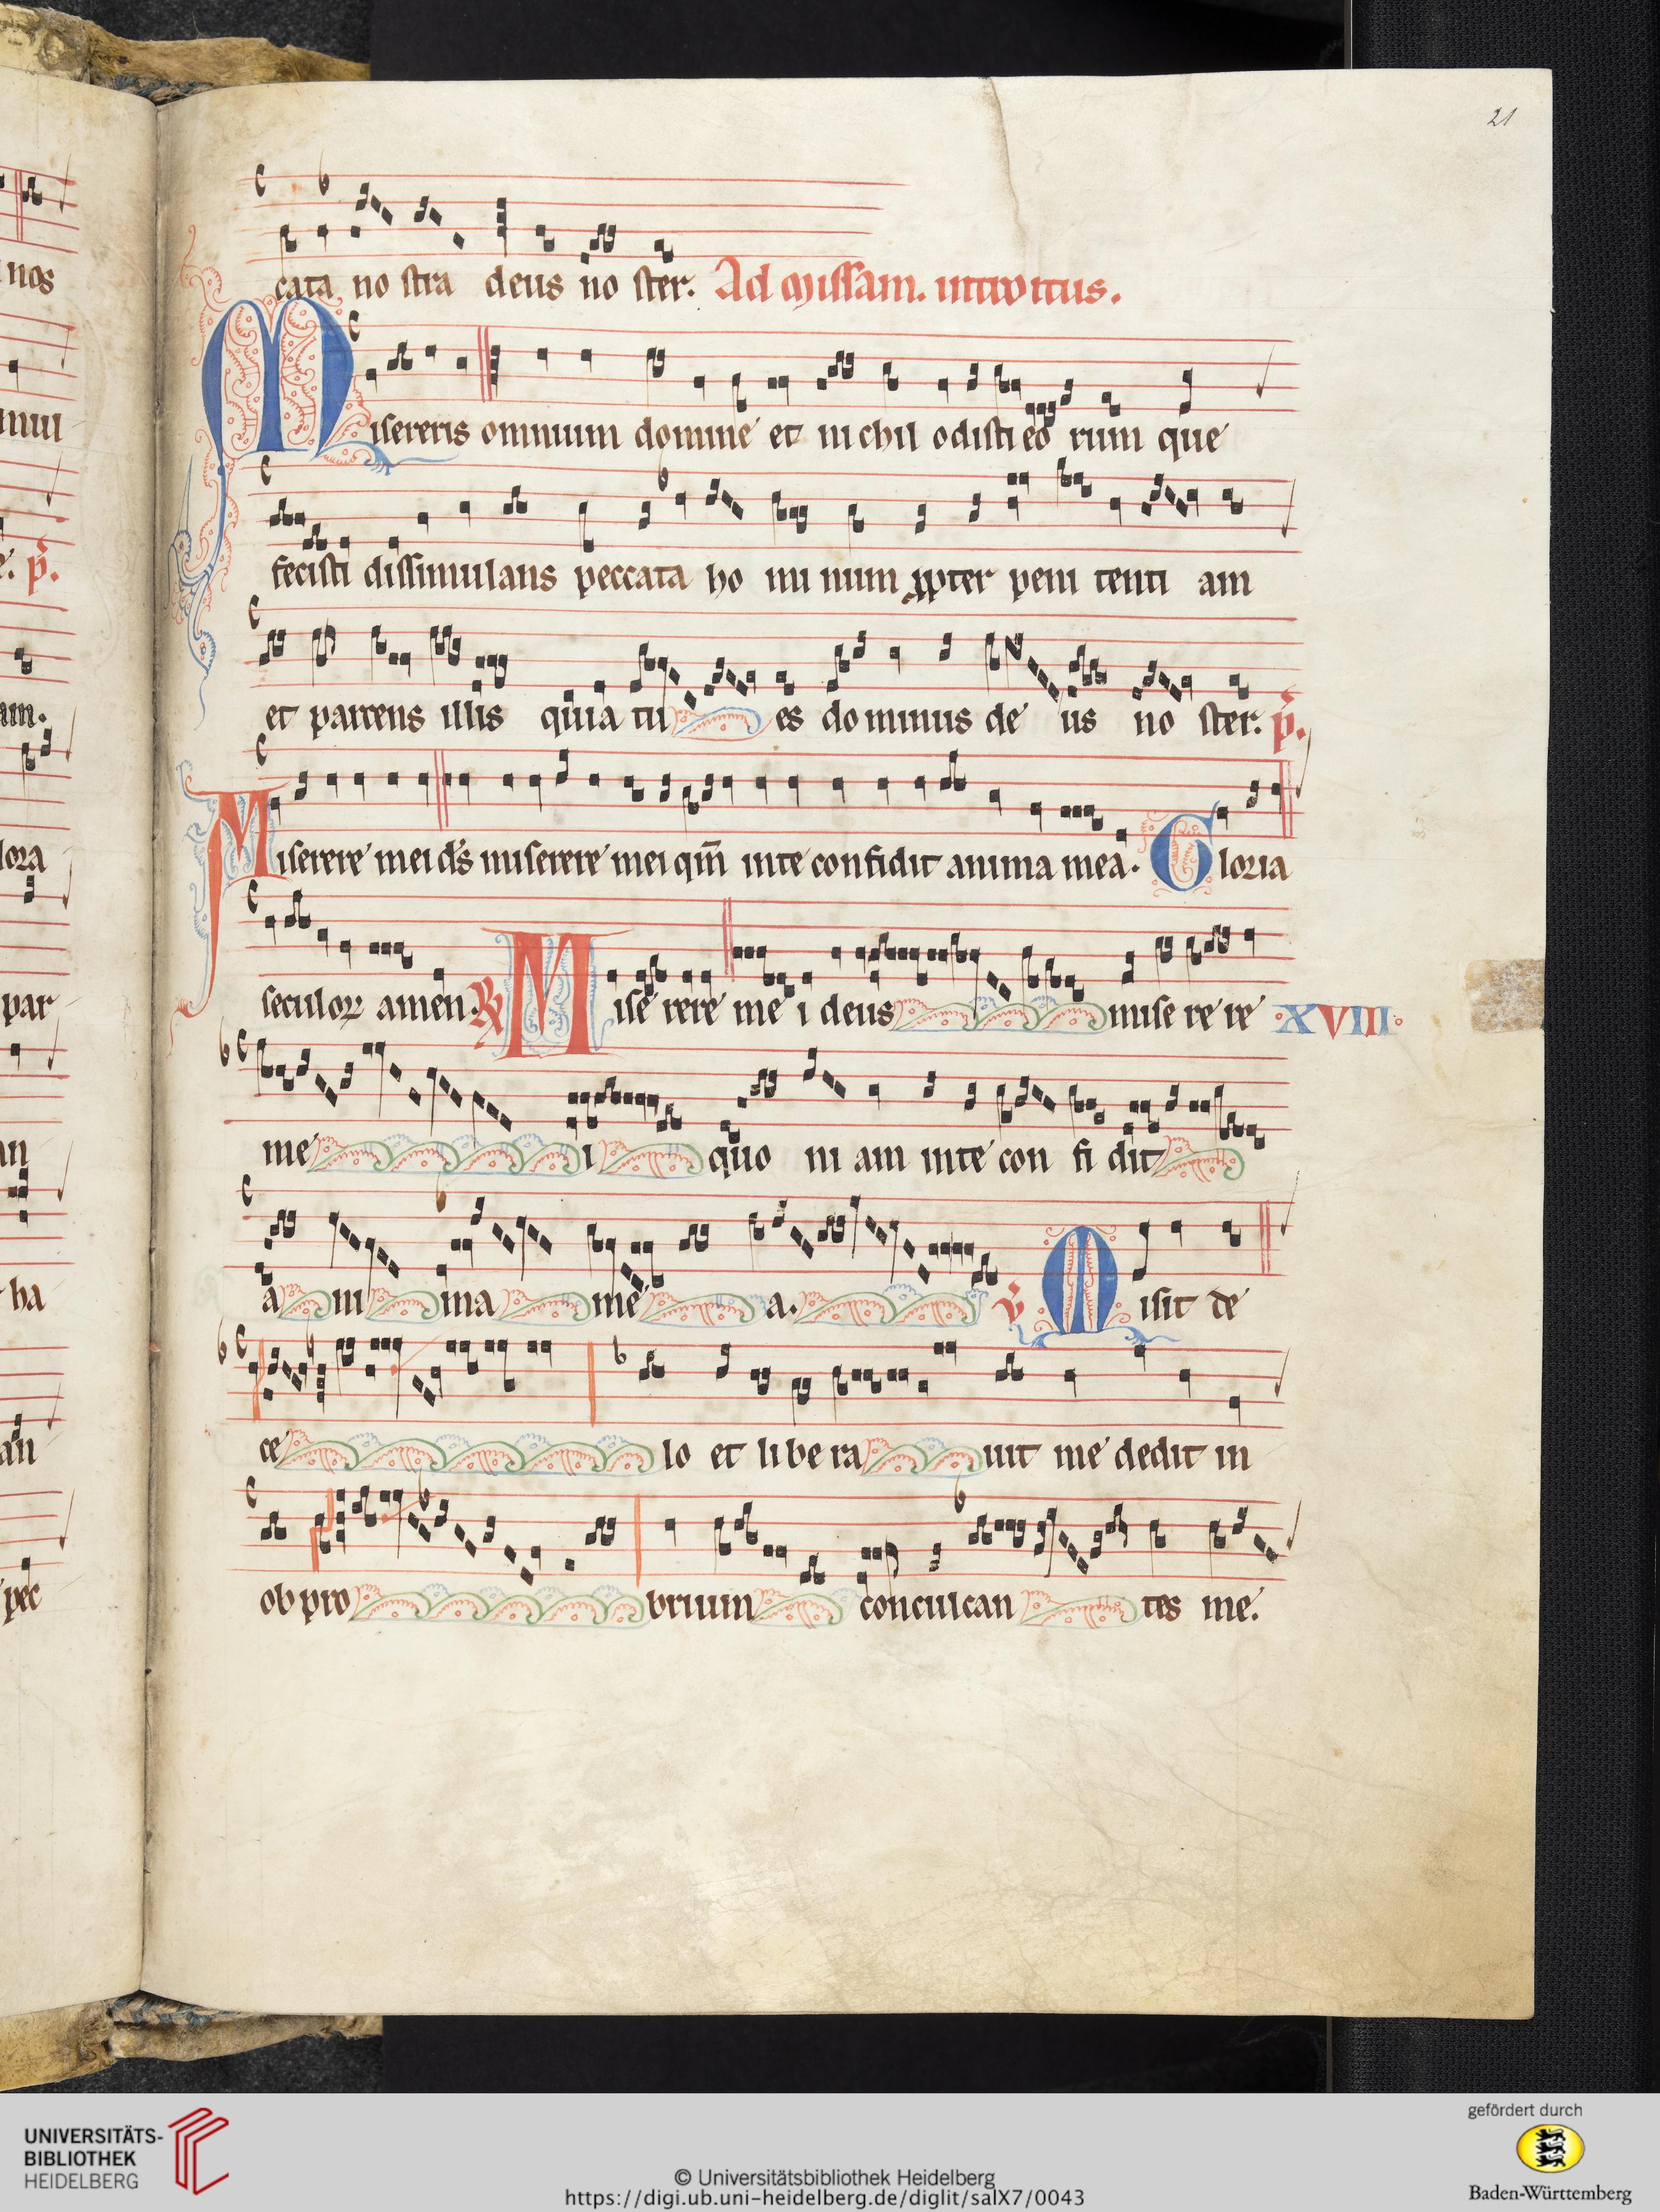 21
cata no stra deus no ster. Ad missam. introitus.
Misereris omnium domine et nichil odisti eo rum que
fecisti dissimulans peccata ho mi num xpter peni tenti am
et parcens illis quia tu es dominus de us no ster. p̄.
Miserere mei ds̄ miserere mei qm̄ inte confidit anima mea. Gloria
seculoꝝ amen. ℞ Mise rere me i deus mise re re XVIII
me i quo ni am inte con fi dit
a ni ma me a. v̄ Misit de
ce lo et li be ra uit me dedit in
ob pro brium conculcan tes me.
nos
am.
lora
par
an
ba
an
pec
UNIVERSITÄTS-
BIBLIOTHEK
HEIDELBERG
© Universitätsbibliothek Heidelberg
https://digi.ub.uni-heidelberg.de/diglit/salX7/0043
gefördert durch
Baden-Württemberg